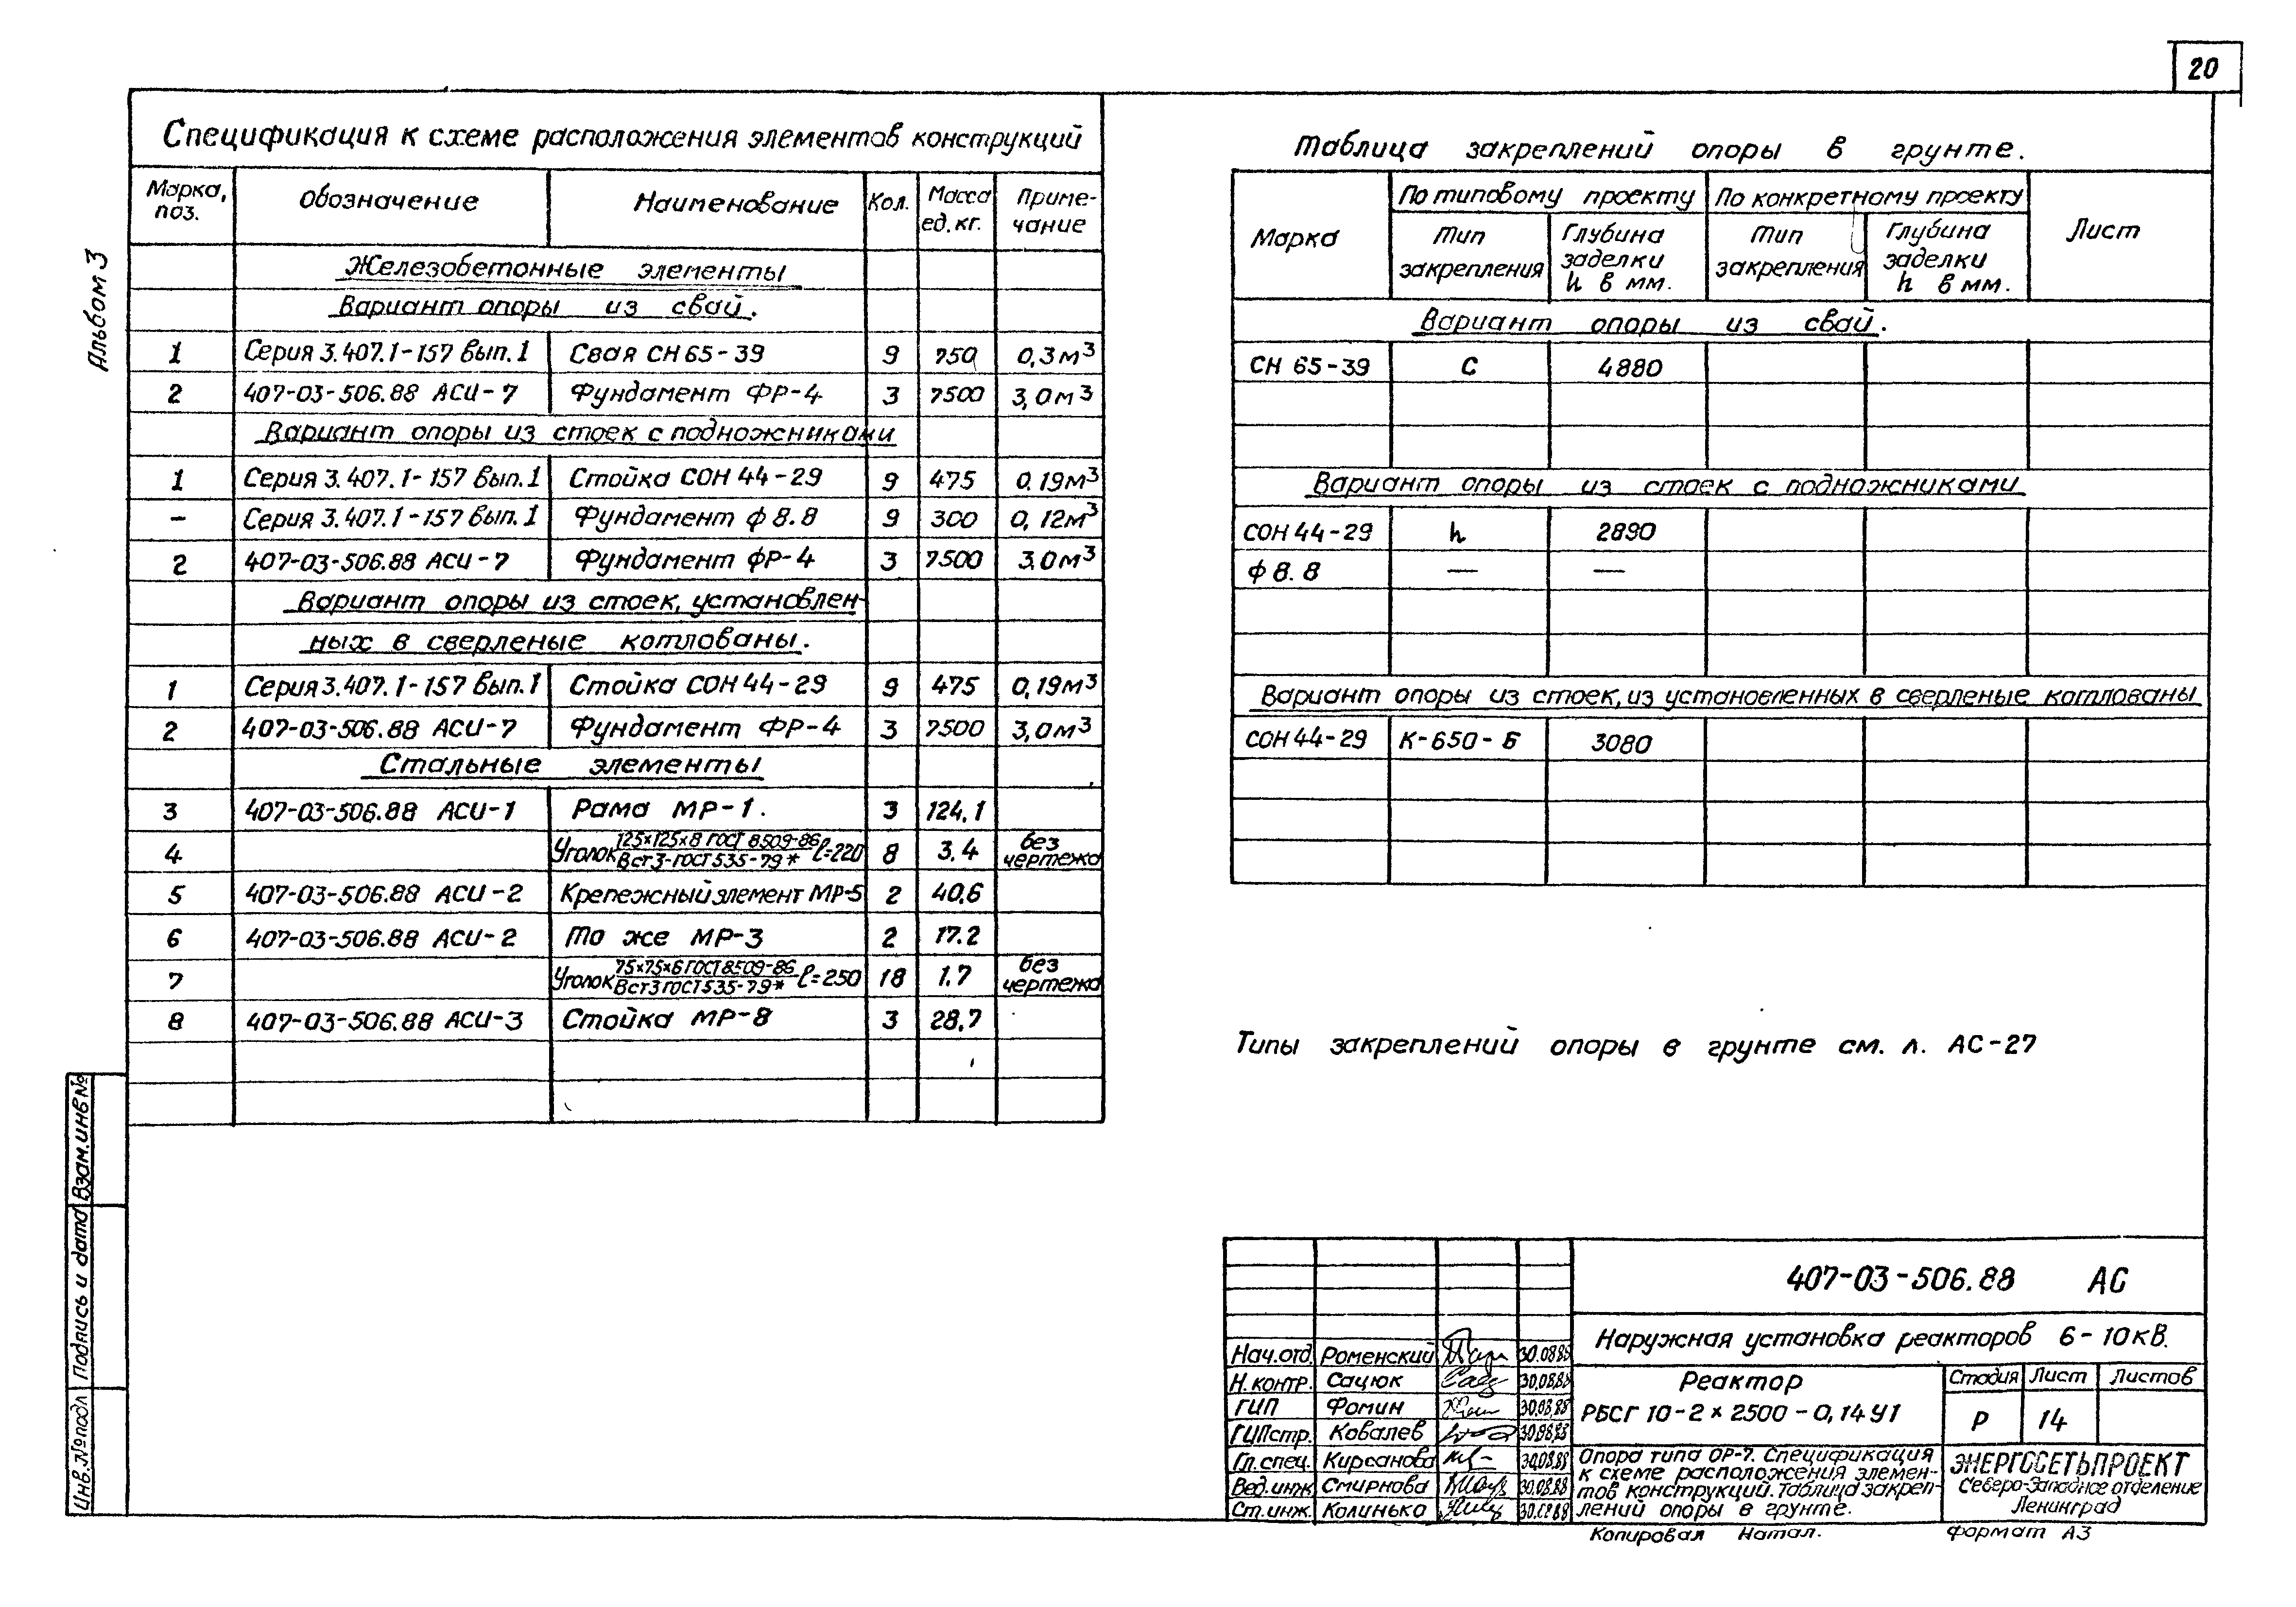 20
Альбом 3
Спецификация к схеме расположения элементов конструкций
Марка, поз. Обозначение Наименование Кол. Масса ед. кг. Приме-чание
Железобетонные элементы
Вариант опоры из свай.
1 Серия 3.407.1-157 вып.1 Свая СН 65-39 9 750 0,3м³
2 407-03-506.88 АСИ-7 Фундамент ФР-4 3 7500 3,0м³
Вариант опоры из стоек с подножниками
1 Серия 3.407.1-157 вып.1 Стойка СОН 44-29 9 475 0.19м³
- Серия 3.407.1-157 вып.1 Фундамент ф 8.8 9 300 0,12м³
2 407-03-506.88 АСИ-7 Фундамент ФР-4 3 7500 3.0м³
Вариант опоры из стоек, установлен-
ных в сверленые котлованы.
1 Серия 3.407.1-157 вып.1 Стойка СОН 44-29 9 475 0,19м³
2 407-03-506.88 АСИ-7 Фундамент ФР-4 3 7500 3,0м³
Стальные элементы
3 407-03-506.88 АСИ-1 Рама МР-1. 3 124,1
4 Уголок 125×125×8 ГОСТ 8509-86 / Вст3-ГОСТ 535-79* ℓ=220 8 3.4 без чертежа
5 407-03-506.88 АСИ-2 Крепежный элемент МР-5 2 40,6
6 407-03-506.88 АСИ-2 То же МР-3 2 17.2
7 Уголок 75×75×6 ГОСТ 8509-86 / Вст3 ГОСТ 535-79* ℓ=250 18 1.7 без чертежа
8 407-03-506.88 АСИ-3 Стойка МР-8 3 28,7
Таблица закреплений опоры в грунте.
Марка По типовому проекту По конкретному проекту Лист
Тип закрепления Глубина заделки h в мм. Тип закрепления Глубина заделки h в мм.
Вариант опоры из свай.
СН 65-39 С 4880
Вариант опоры из стоек с подножниками
СОН 44-29 h 2890
ф 8.8 — —
Вариант опоры из стоек, из установленных в сверленые котлованы
СОН 44-29 К-650-Б 3080
Типы закреплений опоры в грунте см. л. АС-27
Инв.№подл Подпись и дата Взам.инв№
407-03-506.88 АС
Наружная установка реакторов 6-10кВ.
Нач.отд. Роменский 30.08.88
Н.контр. Сацюк 30.08.88
ГИП Фомин 30.08.88
ГИПстр. Ковалев 30.08.88
Гл.спец. Кирсанова 30.08.88
Вед.инж Смирнова 30.08.88
Ст.инж. Колинько 30.08.88
Реактор
РБСГ 10-2×2500-0,14У1
Стадия Лист Листов
Р 14
Опора типа ОР-7. Спецификация
к схеме расположения элемен-
тов конструкций. Таблица закреп-
лений опоры в грунте.
ЭНЕРГОСЕТЬПРОЕКТ
Северо-Западное отделение
Ленинград
Копировал Натал. Формат А3